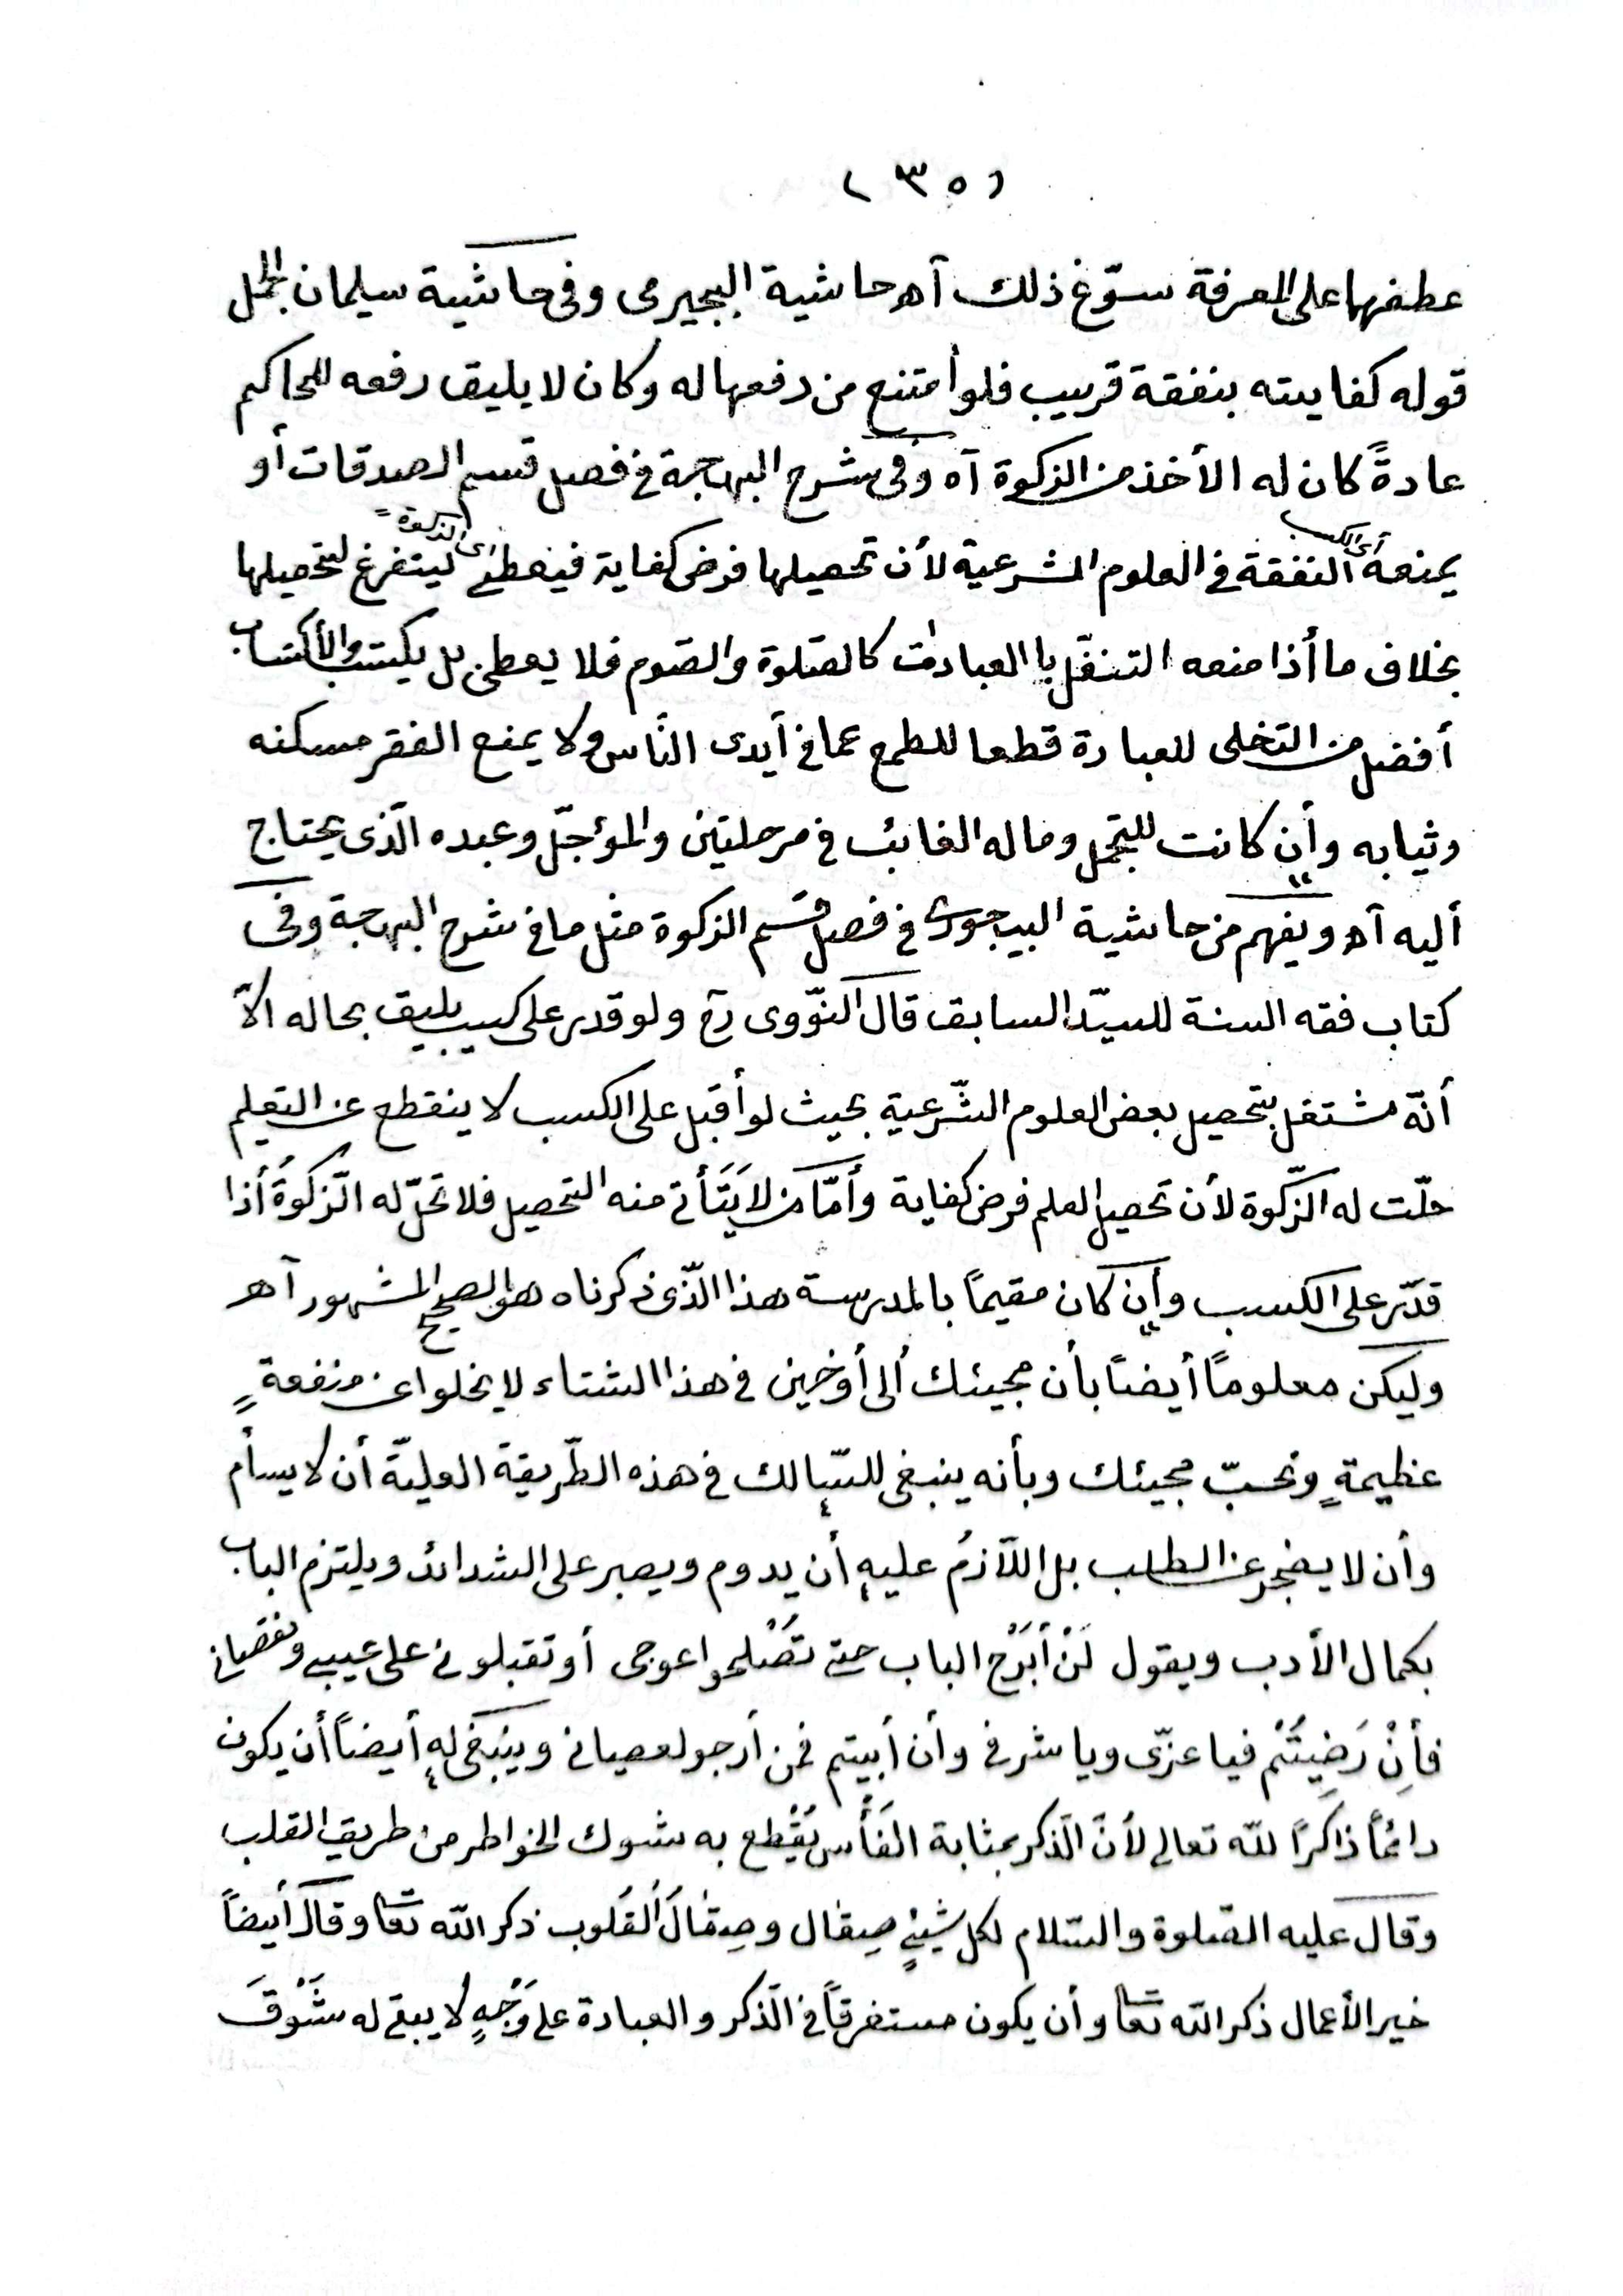 ( ٣٥ )
عطفها على المعرفة سوّغ ذلك آه حاشية البجيرمى وفى حاشية سليمان الجمل
قوله كفايته بنفقة قريب فلو أمتنع من دفعها له وكان لا يليق رفعه للحاكم
عادةً كان له الأخذ من الزكوة آه وفى شرح البهجة فى فصل قسم الصدقات أو
يمنعه أى الكسب التفقة فى العلوم الشرعية لأن تحصيلها فرض كفاية فيعطى أى الزكوة ليتفرغ لتحصيلها
بخلاف ما أذا منعه التنفّل باالعبادات كالصّلوة والصّوم فلا يعطى بل يكتسب والأكتساب
أفضل من التخلى للعبادة قطعا للطمع عما فى أيدى النّاس ولا يمنع الفقر مسكنه
وثيابه وأن كانت للتجمل وماله الغائب فى مرحلتين والمؤجّل وعبده الّذى يحتاج
أليه آه ويفهم من حاشية البيجورى فى فصل قسم الزكوة مثل ما فى شرح البهجة وفى
كتاب فقه السنة للسيّد السابق قال النّووى رح ولو قدر على كسب يليق بحاله الاّ
أنّه مشتغل بتحصيل بعض العلوم الشّرعية بحيث لو أقبل على الكسب لا ينقطع عن التعليم
حلّت له الزّكوة لأن تحصيل العلم فرض كفاية وأمّا من لا يَتَأتى منه التحصيل فلا تحلّ له الزّكوةُ أذا
قدّر على الكسب وأن كان مقيمًا بالمدرسة هذا الّذى ذكرناه هو الصحيح المشهور آهـ
وليكن معلومًا أيضًا بأن مجيئك ألى أوخين فى هذا الشتاء لا يخلوا عن منفعةٍ
عظيمةٍ ونحبّ مجيئك وبأنه ينبغى للسّالك فى هذه الطّريقة العليّة أن لا يسأم
وأن لا يضجر عن الطلب بل اللّازمُ عليه أن يدوم ويصبر على الشدائد ويلتزم الباب
بكمال الأدب ويقول لَنْ أَبْرَح الباب حتى تُصْلحوا عوجى أو تقبلونى على عيبى ونقصانى
فأِنْ رَضِيتُمْ فيا عزّى ويا شرفى وأن أبيتم فمن أرجو لعصيانى وينبغى له أيضاً أن يكون
دائمًا ذاكرًا للّه تعالى لأنّ الّذكر بمثابة الفَأْس يُقْطع به شوك الخواطر من طريق القلب
وقال عليه الصّلوة والسّلام لكل شيئٍ صِقال وصِقالُ الْقلوب ذكر اللّه تعا وقال أيضاً
خير الأعمال ذكر اللّه تعا وأن يكون مستغرقاً فى الّذكر والعبادة على وَجْهٍ لا يبقى له شَوْقَ